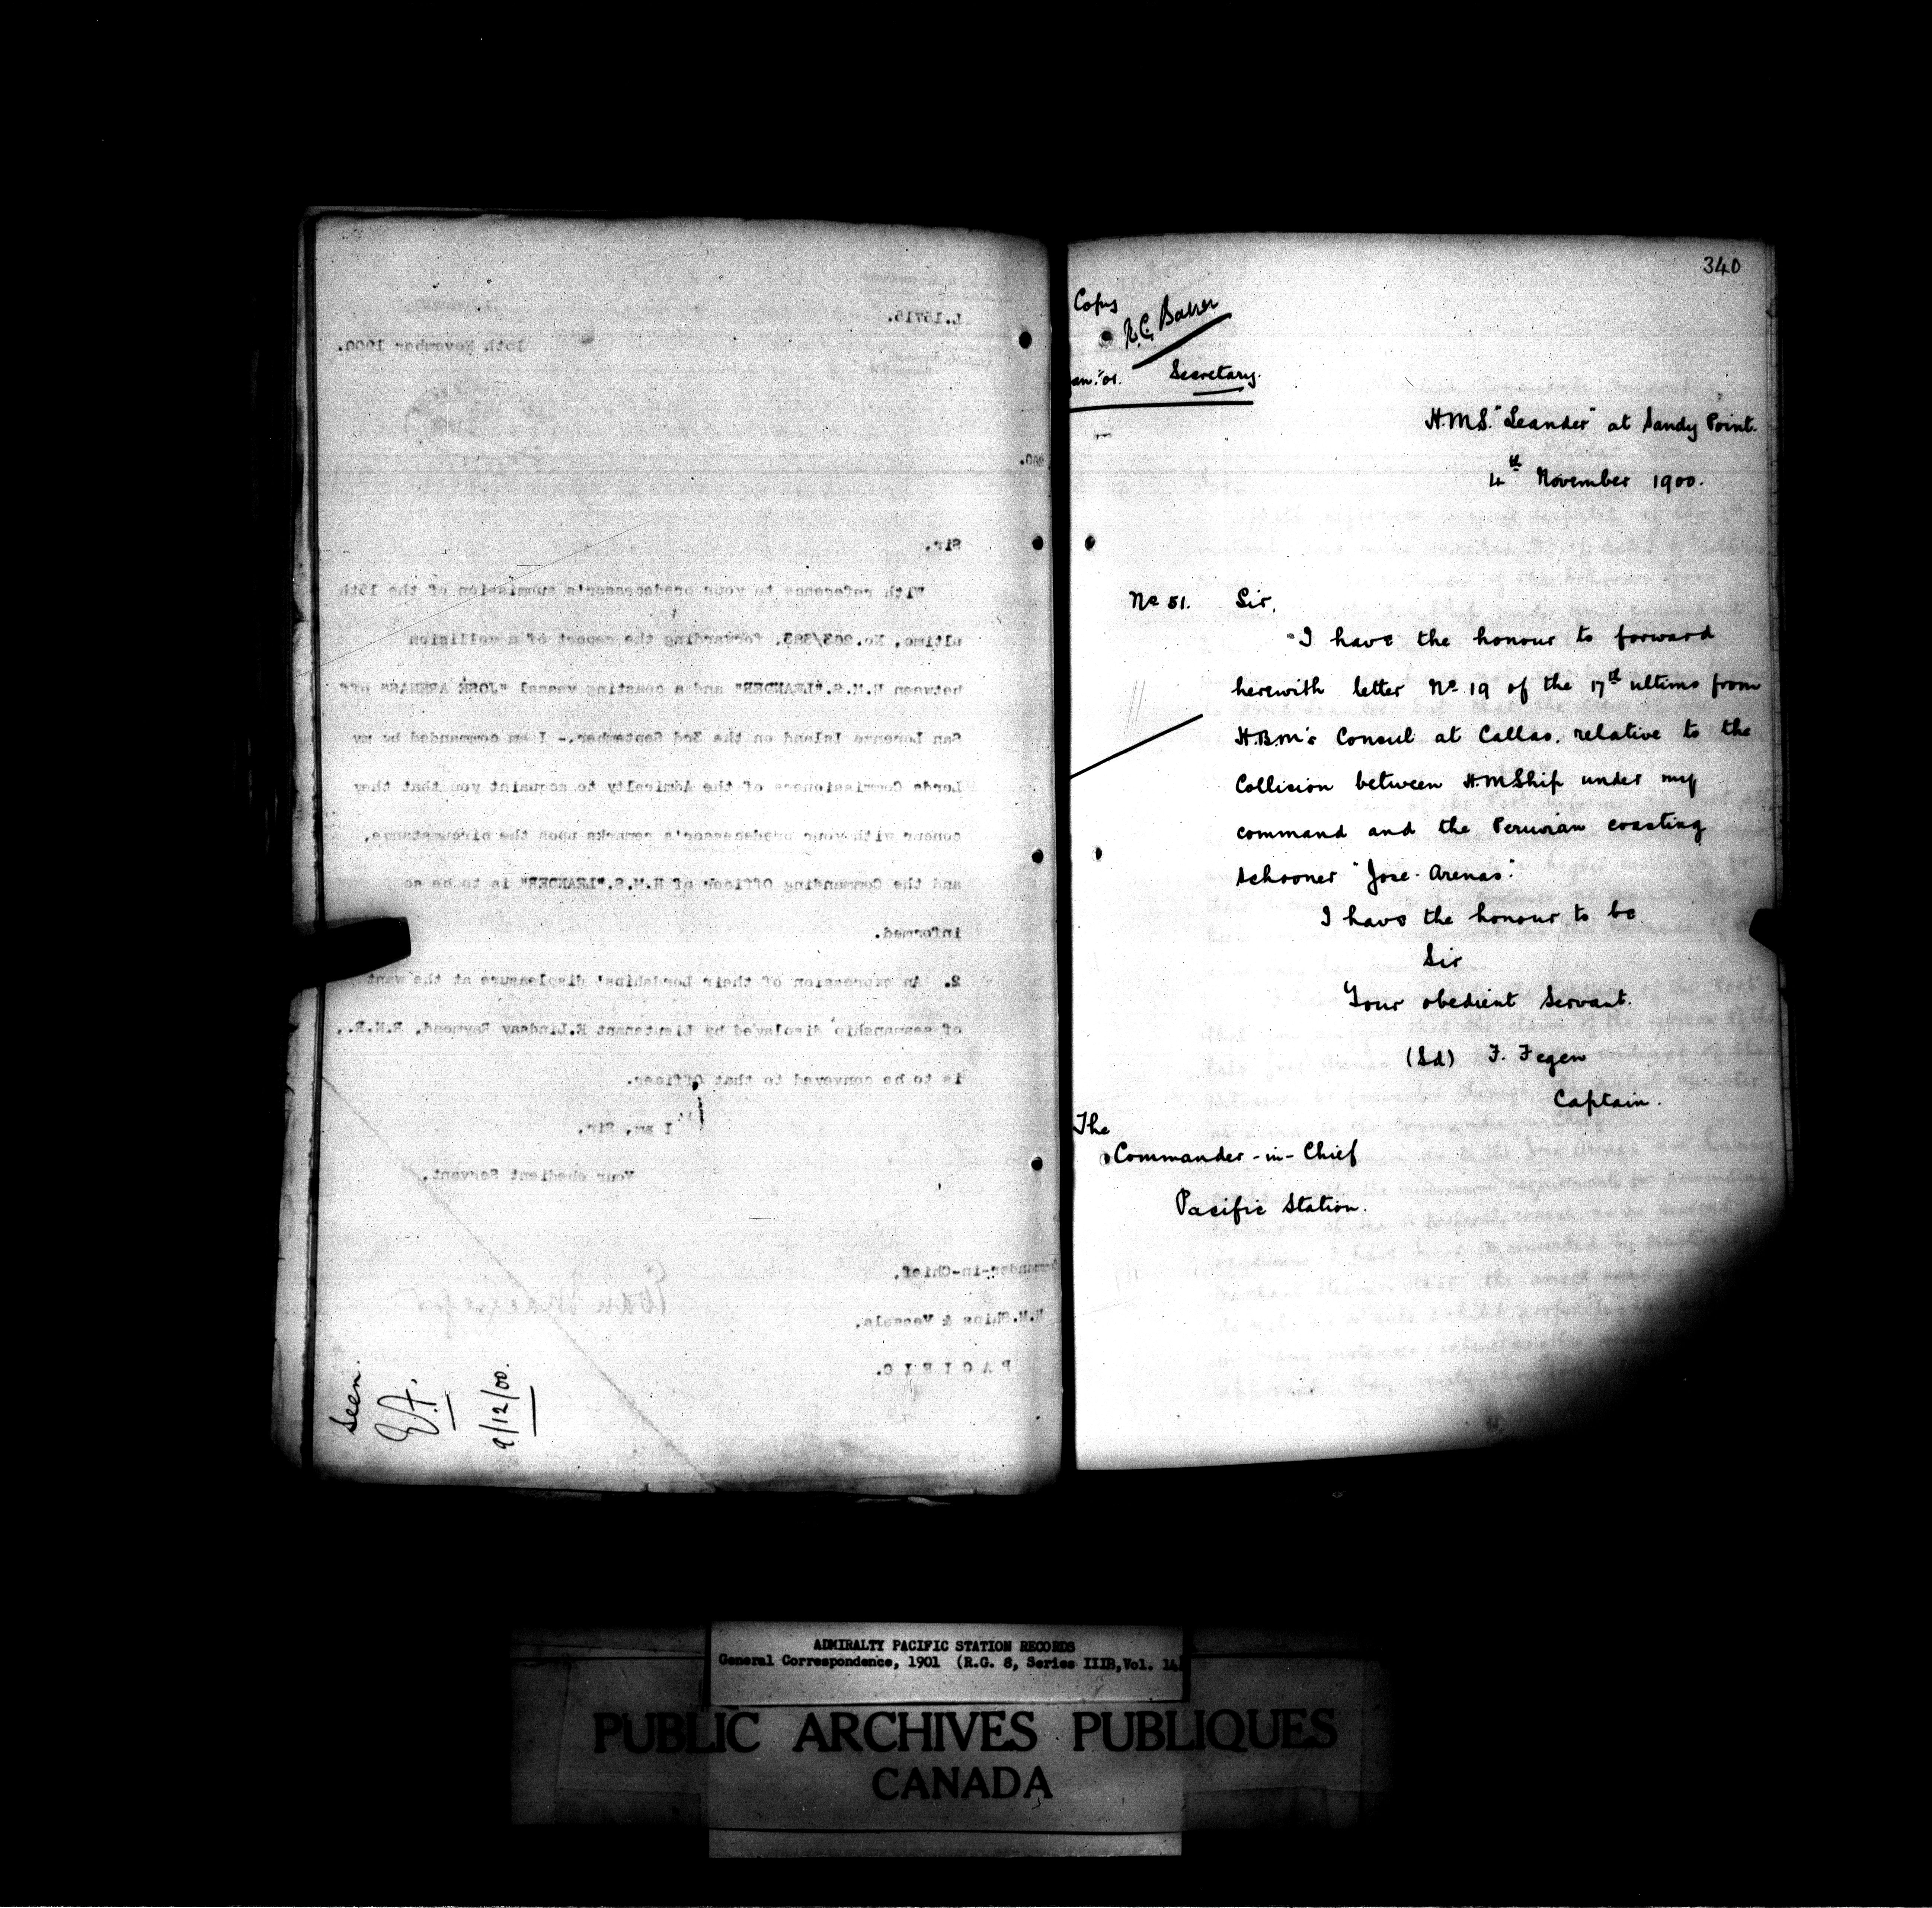 L.15715.
15th November 1900.
Sir,
With reference to your predecessor's submission of the 15th
ultimo, No. 263/383, forwarding the report of a collision
between H.M.S. "LEANDER" and a coasting vessel "JOSÉ ARENAS" off
San Lorenzo Island on the 3rd September,- I am commanded by my
Lords Commissioners of the Admiralty to acquaint you that they
concur with your predecessor's remarks upon the circumstance,
and the Commanding Officer of H.M.S. "LEANDER" is to be so
informed.
2. An expression of their Lordships' displeasure at the want
of seamanship displayed by Lieutenant E. Lindsay Raymond, R.N.R.,
is to be conveyed to that Officer.
I am, Sir,
Your obedient Servant,
Commander-in-Chief,
H.M. Ships & Vessels,
PACIFIC.
Seen.
9/12/00.
340
Copy
Secretary.
H.M.S. "Leander" at Sandy Point.
4th November 1900.
No 51. Sir,
I have the honour to forward
herewith letter No 19 of the 17th ultimo from
H.B.M's Consul at Callao, relative to the
Collision between H.M Ship under my
command and the Peruvian coasting
schooner "Jose Arenas".
I have the honour to be
Sir
Your obedient Servant.
(Sd) F. Fegen
Captain.
The
Commander-in-Chief
Pacific Station.
ADMIRALTY PACIFIC STATION RECORDS
General Correspondence, 1901 (R.G. 8, Series IIIB, Vol. 14)
PUBLIC ARCHIVES PUBLIQUES
CANADA